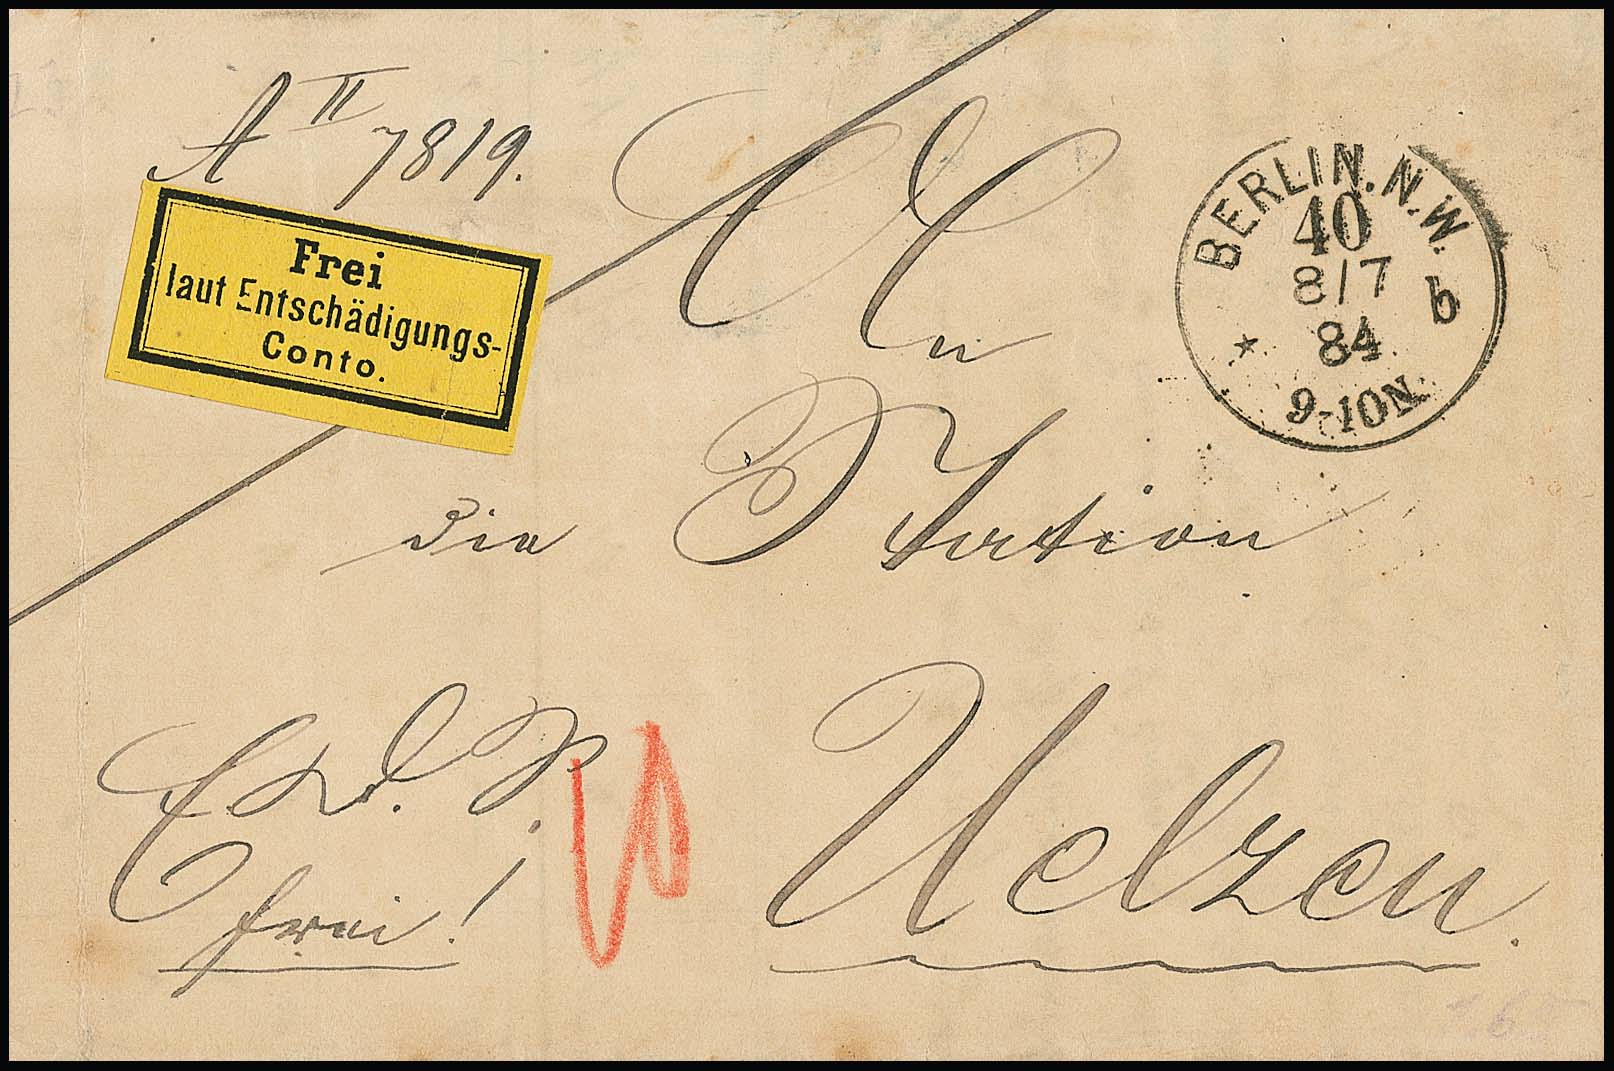 A II 7819.
Frei
laut Entschädigungs-
Conto.
BERLIN. N.W.
40
8/7
84
b
9-10N.
An
die Station
Uelzen.
frei!